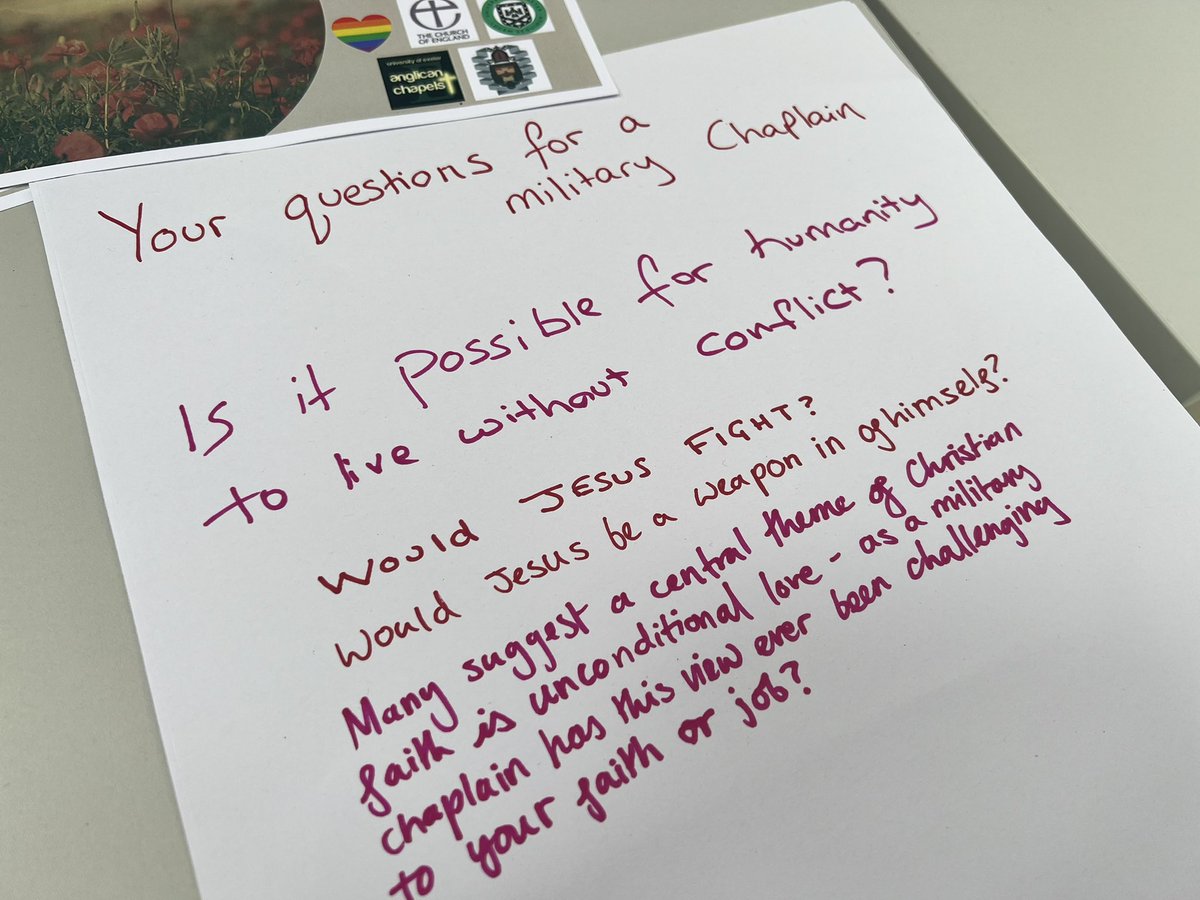 THE CHURCH
OF ENGLAND
university of exeter
anglican
chapels
Your questions for a
military Chaplain
Is it possible for humanity
to live without conflict?
Would JESUS FIGHT?
Would Jesus be a weapon in of himself?
Many suggest a central theme of Christian
faith is unconditional love - as a military
chaplain has this view ever been challenging
to your faith or job?